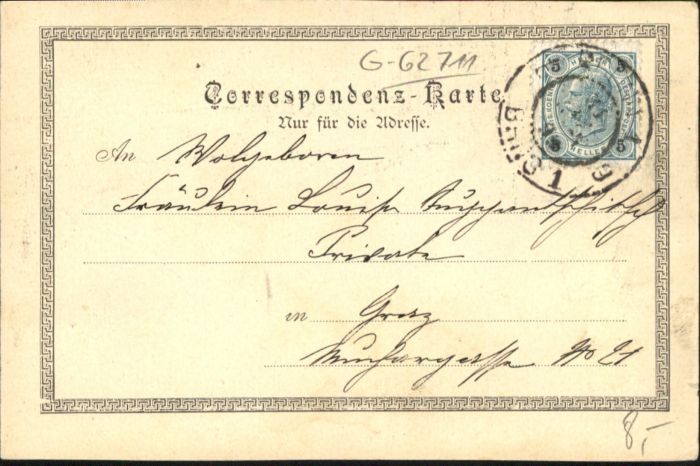 G-62711
5 HELLER 5
Correspondenz-Karte
Nur für die Adresse.
An Wolgeboren
Fräulein Louise
Private
in Graz
Muchargasse No 21
8,-